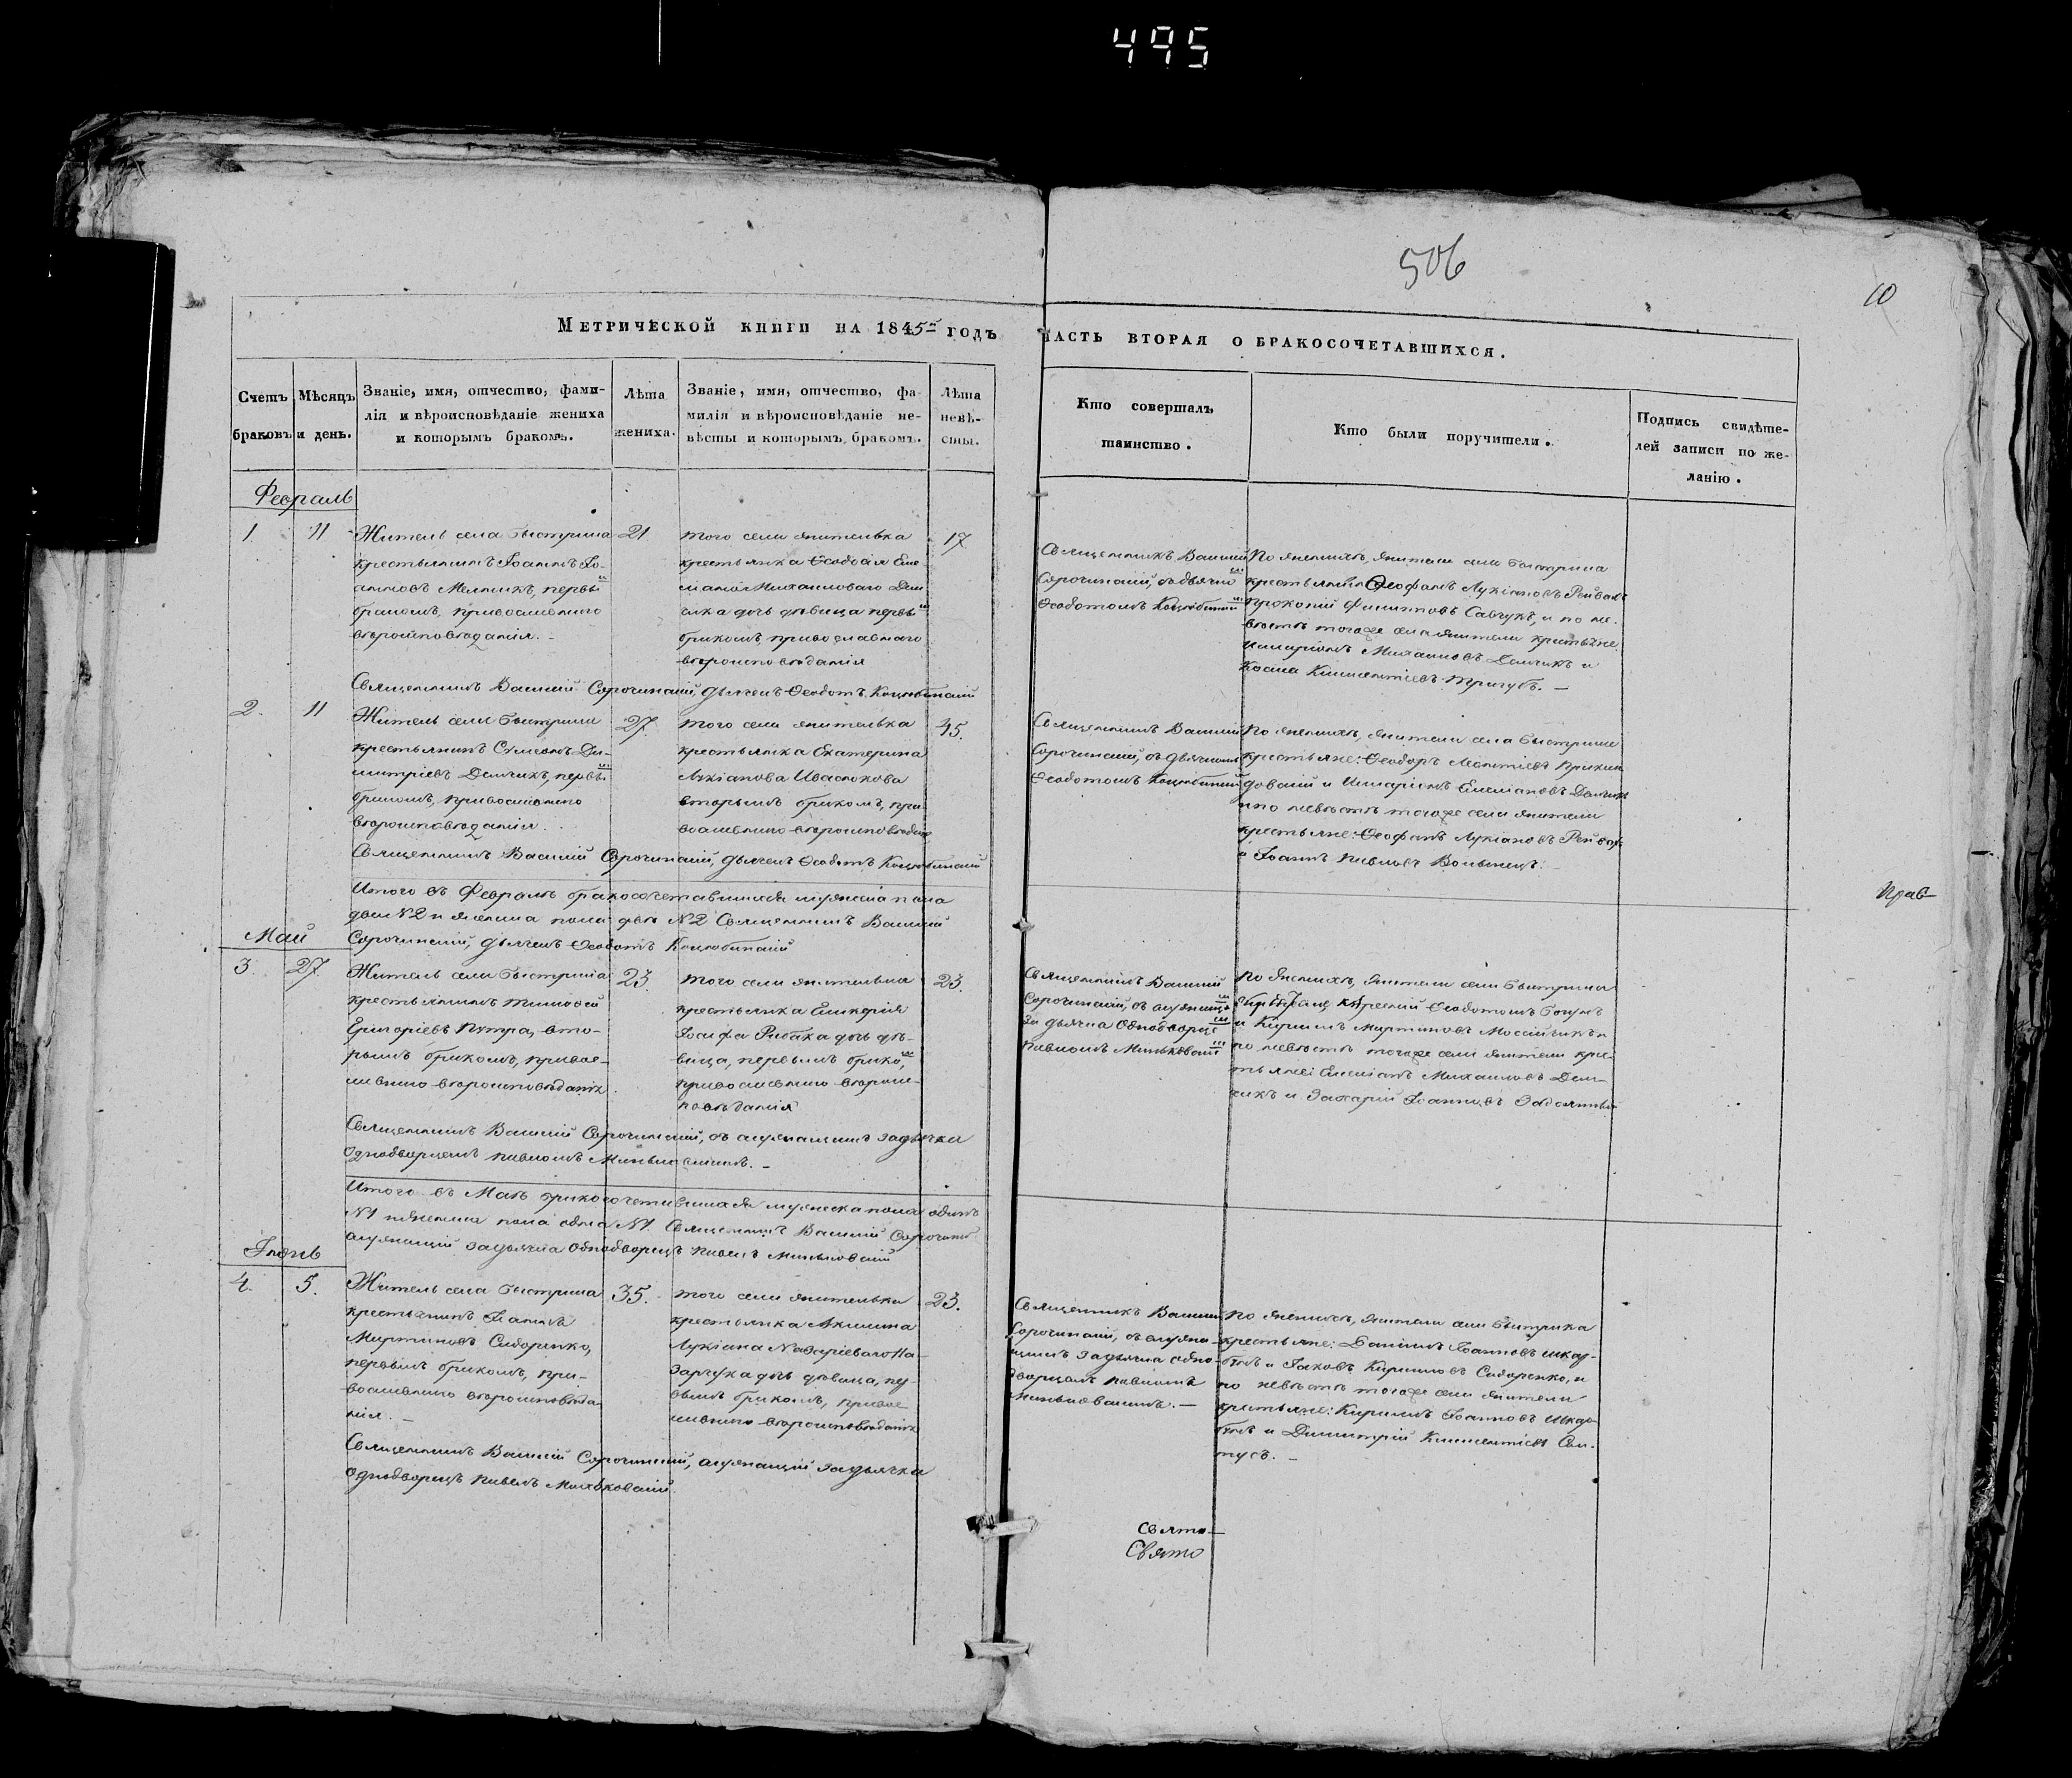 495
506
10
Метрической книги на 1845й годъ
часть вторая о бракосочетавшихся.
Счетъ браковъ
Мѣсяцъ и день.
Званіе, имя, отчество, фами-
лія и вѣроисповѣданіе жениха
и которымъ бракомъ.
Лѣта
жениха.
Званіе, имя, отчество, фа-
милія и вѣроисповѣданіе не-
вѣсты и которымъ бракомъ.
Лѣта
невѣ-
сты.
Кто совершалъ
таинство.
Кто были поручители.
Подпись свидѣте-
лей записи по же-
ланію.
Февраль
1. 11
Житель села Быстрика
крестьянинъ Іоаннъ Іо-
анновъ Мельникъ, первы
бракомъ, православнаго
вѣроисповѣданія.
21
того села жителька
крестьянка Ѳеодосія Еме-
Михайловаго Дем
чика дочь дѣвица первы
бракомъ, православнаго
вѣроисповѣданія
17
Священникъ Василій
Сорочинскій, съ дьячко
Ѳеодотомъ Коцюбинским
По женихѣ, жители села Быстрика
крестьяне Ѳеофанъ Лукіановъ
Прокопій Филиповъ Савчукъ, и по не-
вѣстѣ тогоже села жители крестьяне
Илларіонъ Михайловъ Демчикъ и
Косма Климентіевъ Тригубъ. —
Священникъ Василій Сорочинскій, дьячекъ Ѳеодотъ Коцюбинскій
2. 11
Житель села Быстрика
крестьянинъ Симеонъ Ди-
митріевъ Демчикъ, первы
бракомъ, православнаго
вѣроисповѣданія.
27.
того села жителька
крестьянка Екатерина
Лукіанова Ивасюкова
вторымъ бракомъ, пра-
вославнаго вѣроисповѣдан
45.
Священникъ Василій
Сорочинскій, съ дьячкомъ
Ѳеодотомъ Коцюбинским
По женихѣ, жители села Быстрика
крестьяне: Ѳеодоръ Леонтіевъ
и Илларіонъ Емеліановъ Демчик
и по невѣстѣ тогоже села жители
крестьяне: Ѳеофанъ Лукіановъ
и Іоаннъ Павловъ Волынецъ. —
Священникъ Василій Сорочинскій, дьячекъ Ѳеодотъ Коцюбинскій
Итого въ Февралѣ бракосочетавшихся мужеска пола
два №2 и женска пола двѣ №2 Священникъ Василій
Сорочинскій, дьячекъ Ѳеодотъ Коцюбинскій
Прав-
Май
3. 27
Житель села Быстрика
крестьянинъ Тимоѳей
Григоріевъ Путра, вто-
рымъ бракомъ, правос-
лавнаго вѣроисповѣданія
23.
того села жителька
крестьянка Гликерія
Іосифа Рибака дочь дѣ-
вица, первымъ брако,
православнаго вѣроис-
повѣданія
23.
Священникъ Василій
Сорочинскій, съ служащ
за дьячка Однодворце
Павломъ Миньковски
По женихѣ, жители села Быстрика
и Кириллъ Мартиновъ Мосійчикъ и
по невѣстѣ тогоже села жители крес-
тьяне: Емеліанъ Михайловъ Дем-
чикъ и Захарій Іоанновъ
Священникъ Василій Сорочинскій, съ служащимъ за дьячка
Однодворцемъ Павломъ Миньковскимъ. —
Итого въ Маѣ бракосочетавшихся мужеска пола одинъ
№1 и женска пола одна №1. Священникъ Василій Сорочинск
служащій за дьячка Однодворецъ Павелъ Миньковскій
Іюнь
4. 5.
Житель села Быстрика
крестьянинъ Іоаннъ
Мартиновъ Сидоренко,
первымъ бракомъ, пра-
вославнаго вѣроисповѣда
нія. —
35.
того села жителька
крестьянка Акилина
Лукіана Назаріеваго На-
зарчука дочь дѣвица, пер
вымъ бракомъ, правос
лавнаго вѣроисповѣданія
23.
Священникъ Василій
Сорочинскій, съ служа-
щимъ за дьячка одно-
дворцемъ Павломъ
Миньковскимъ. —
По женихѣ, жители села Быстрика
крестьяне: Даніилъ Іоанновъ
и Іаковъ Кириловъ Сидоренко, и
по невѣстѣ тогоже села жители
крестьяне: Кириллъ Іоанновъ
и Димитрій Климентіевъ
Священникъ Василій Сорочинскій, служащій за дьячка
Однодворецъ Павелъ Миньковскій.
Свято-
Свято